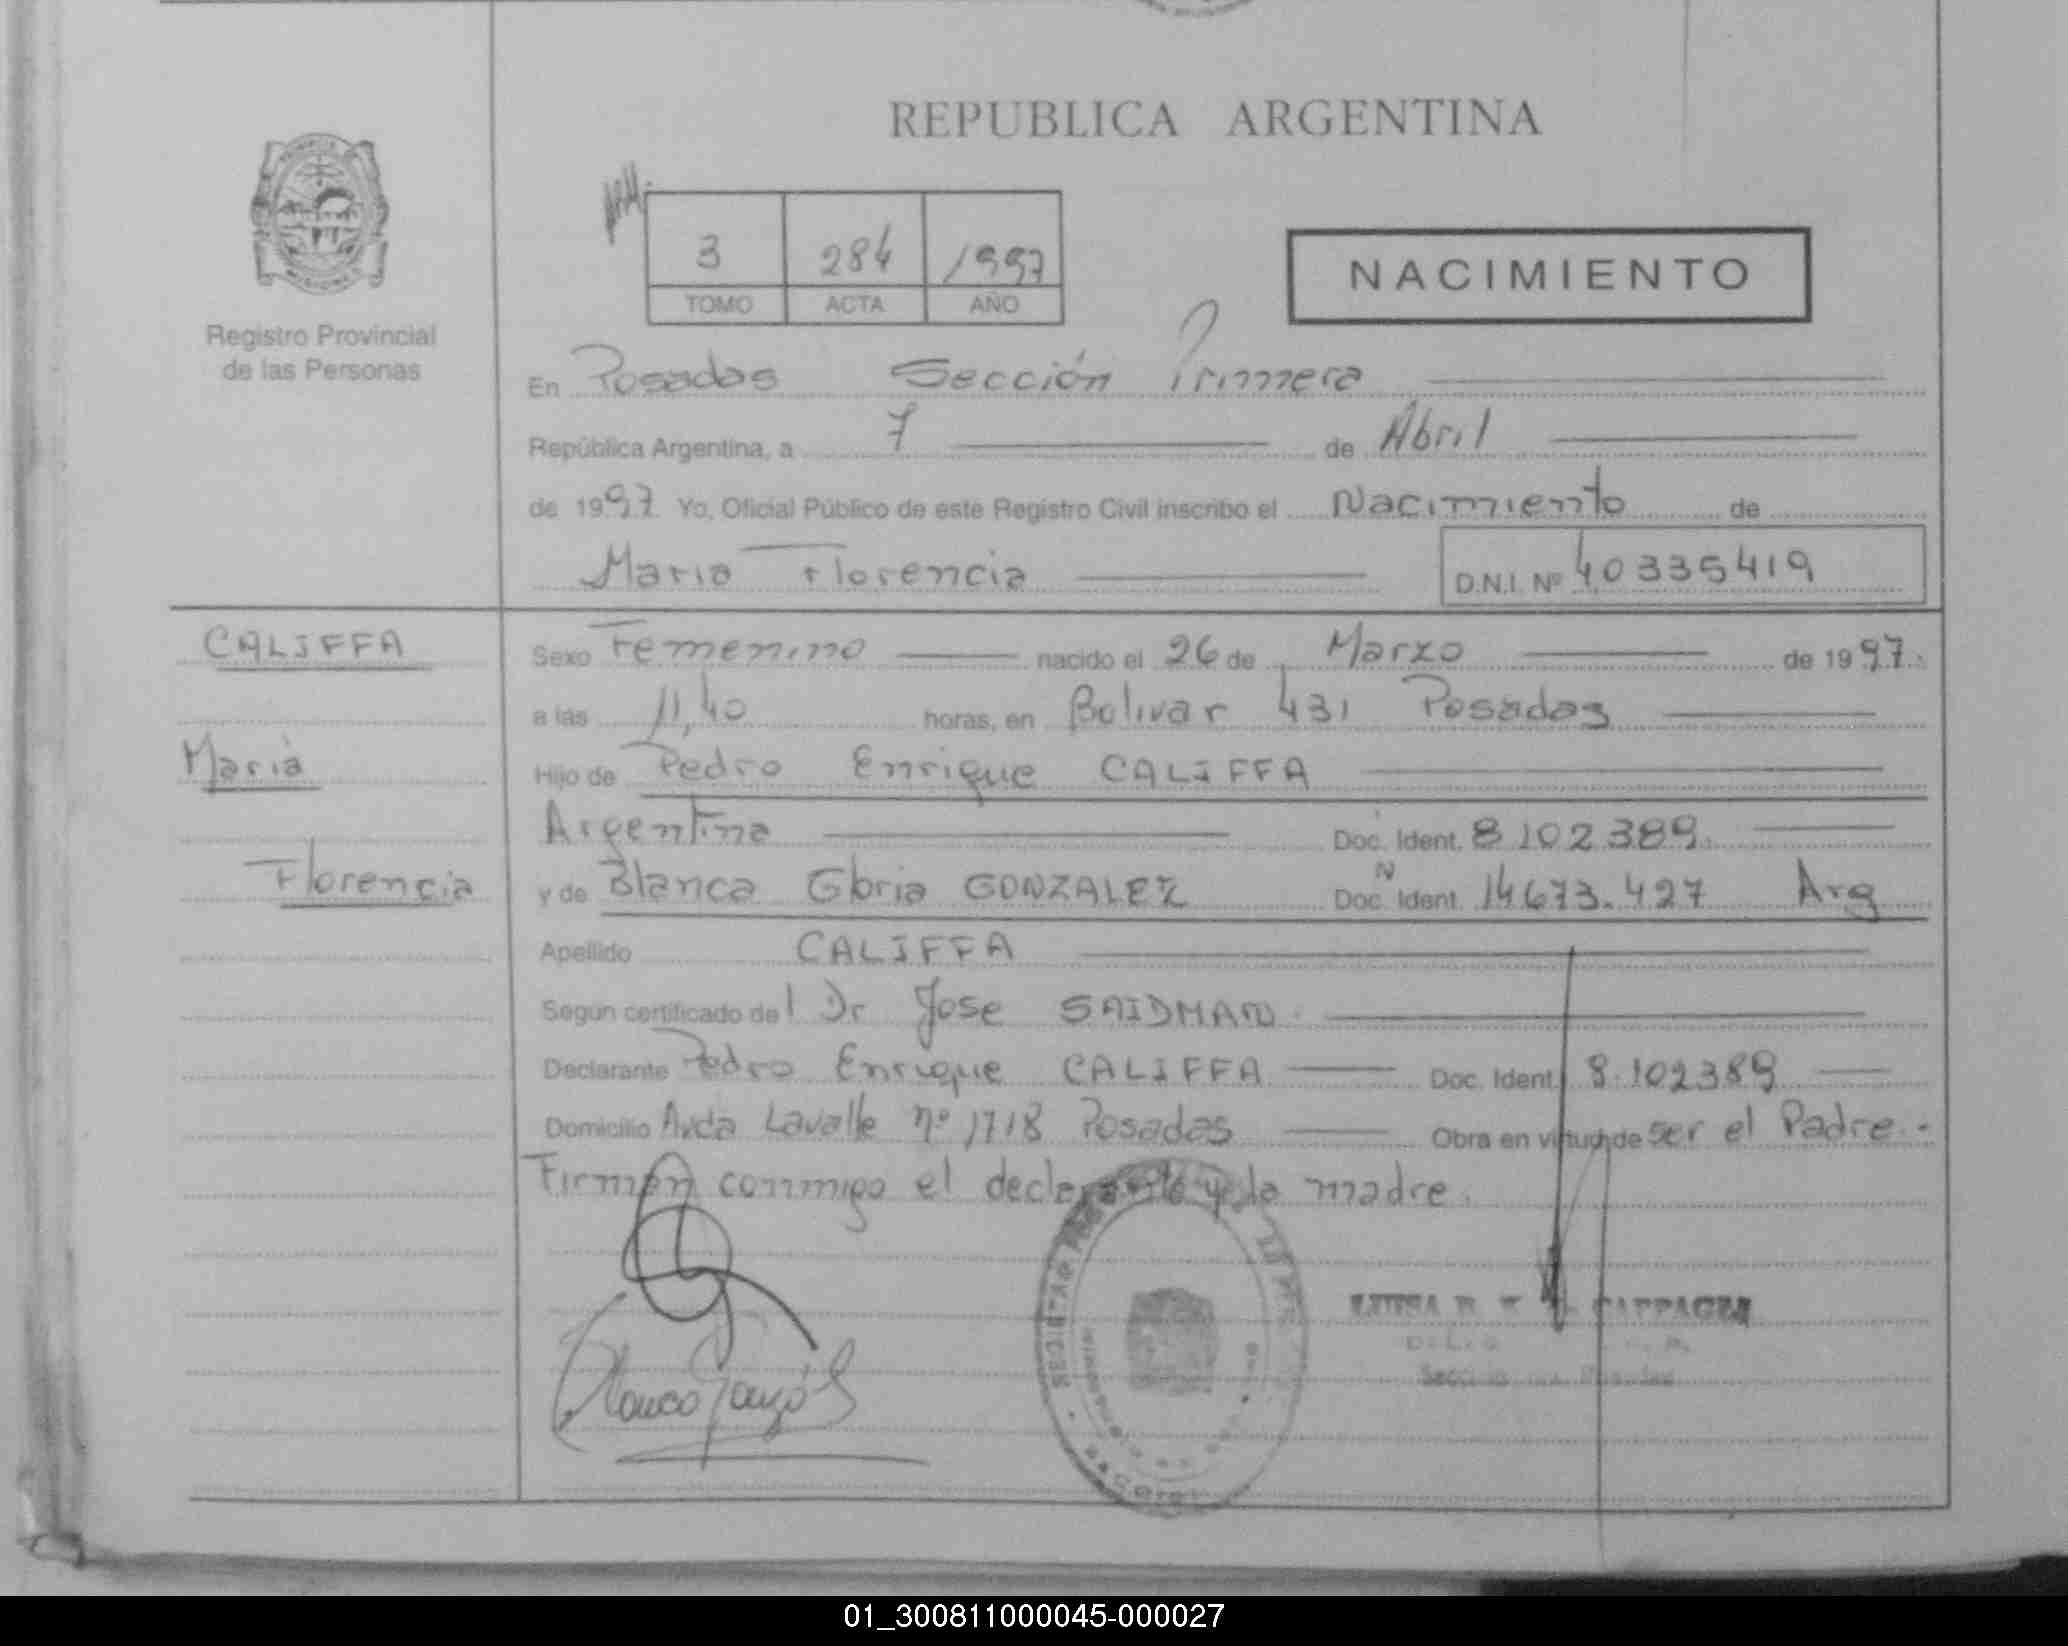 REPUBLICA ARGENTINA
3 284 1997
TOMO ACTA AÑO
NACIMIENTO
Registro Provincial
de las Personas
En Posadas Sección Primera
República Argentina, a 7 de Abril
de 1997 Yo, Oficial Público de este Registro Civil inscribo el Nacimiento de
Maria Florencia D.N.I. Nº 40335419
CALIFFA
Maria
Florencia
Sexo Femenino nacido el 26 de Marzo de 1997.
a las 11,40 horas, en Bolivar 431 Posadas
Hijo de Pedro Enrique CALIFFA
Argentina Doc. Ident. 8.102.389.
y de Blanca Gloria GONZALEZ Doc. Ident. 14.673.427 Arg
N
Apellido CALIFFA
Según certificado del Dr Jose SAIDMAN
Declarante Pedro Enrique CALIFFA Doc. Ident. 8.102389
Domicilio Avda Lavalle nº 1718 Posadas Obra en virtud de ser el Padre.-
Firman conmigo el declarante y la madre.
01_300811000045-000027